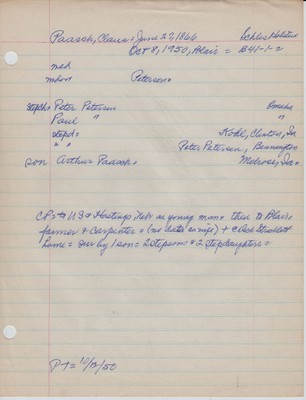 Paasch, Claus = June 27, 1866 Schles Holstein
Oct 8, 1950, Blair = B41-1-2
med
mhon Petersen =
stepch = Peter Petersen Omaha
Paul "
stepd = Kohl, Clinton, Ia
" " Peter Petersen, Bennington
son Arthur Paasch = Melrose, Ia =
to US & Hastings, Nebr as young man = then to Blair =
farmer & Carpenter = (no data on wife) +
home = sur by 1 son = 2 stepsons & 2 stepdaughters =
PT = 10/12/50